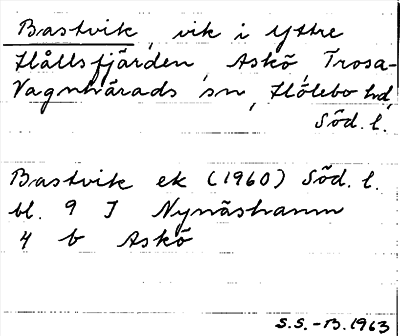 Bastvik, vik i yttre
Hållsfjärden, Askö, Trosa-
Vagnhärads sn, Hölebo hd,
Söd. l.
Bastvik ek (1960) Söd. l.
bl. 9 I Nynäshamn
4 b Askö
S.S.-B. 1963